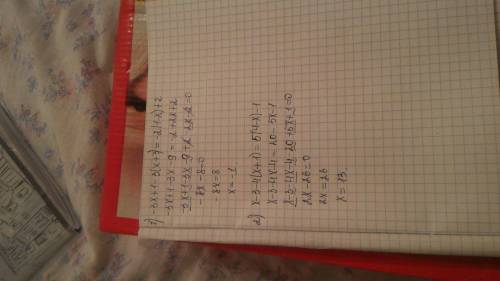 1) -3x+1-3(x+3)=-2(1-x)+2
-3x+1-3x-9=-2+2x+2
-3x+1-3x-9+2-2x-2=0
-8x-8=0
8x=8
x=-1
2) x-3-4(x+1)=5(4-x)-1
x-3-4x-4=20-5x-1
x-3-4x-4-20+5x+1=0
2x-26=0
2x=26
x=13.